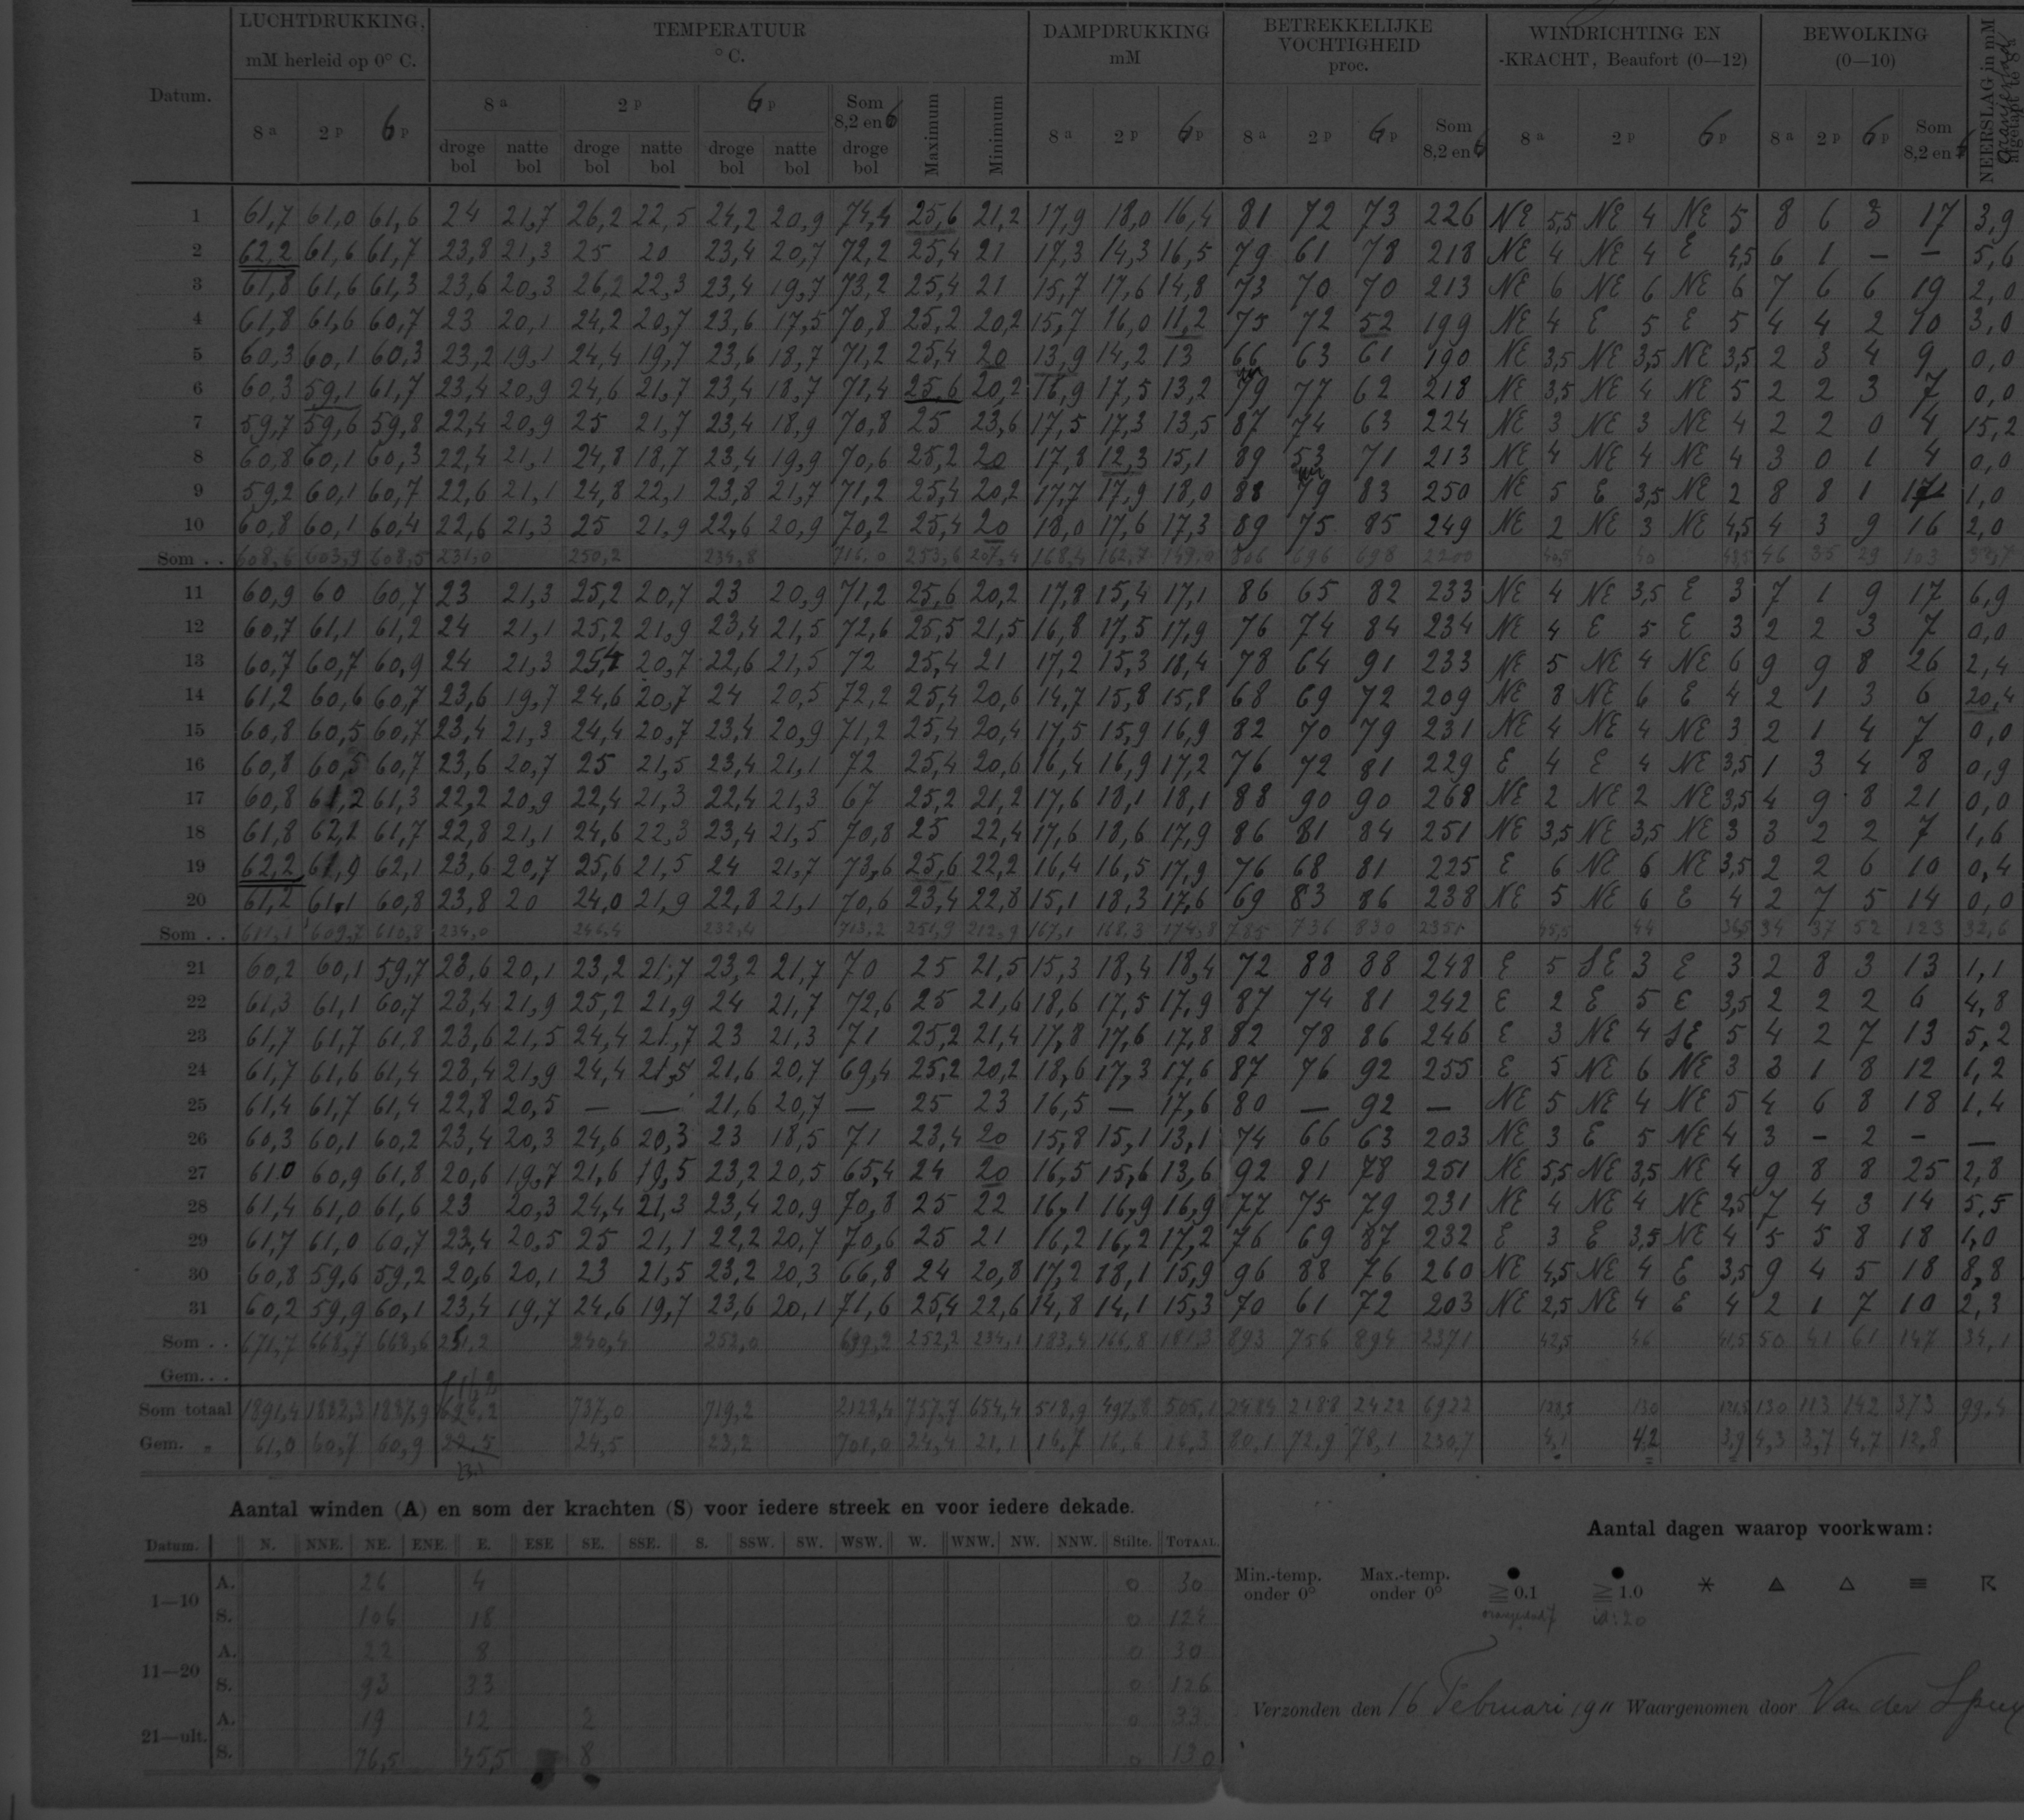 LUCHTDRUKKING, TEMPERATUUR DAMPDRUKKING BETREKKELIJKE VOCHTIGHEID WINDRICHTING EN BEWOLKING NEERSLAG in mM
mM herleid op 0° C. ° C. mM proc. -KRACHT, Beaufort (0—12) (0—10)
Datum. 8 a 2 p 6 p 8 a 2 p 6 p Som 8,2 en 6 Maximum Minimum 8 a 2 p 6 p 8 a 2 p 6 p Som 8,2 en 6 8 a 2 p 6 p 8 a 2 p 6 p Som 8,2 en 6
droge bol natte bol droge bol natte bol droge bol natte bol droge bol
1 61,7 61,0 61,6 24 21,7 26,2 22,5 24,2 20,9 74,4 25,6 21,2 17,9 18,0 16,4 81 72 73 226 NE 5,5 NE 4 NE 5 8 6 3 17 3,9
2 62,2 61,6 61,7 23,8 21,3 25 20 23,4 20,7 72,2 25,4 21 17,3 14,3 16,5 79 61 78 218 NE 4 NE 4 E 4,5 6 1 — — 5,6
3 61,8 61,6 61,3 23,6 20,3 26,2 22,3 23,4 19,7 73,2 25,4 21 15,7 17,6 14,8 73 70 70 213 NE 6 NE 6 NE 6 7 6 6 19 2,0
4 61,8 61,6 60,7 23 20,1 24,2 20,7 23,6 17,5 70,8 25,2 20,2 15,7 16,0 11,2 75 72 52 199 NE 4 E 5 E 5 4 4 2 10 3,0
5 60,3 60,1 60,3 23,2 19,1 24,4 19,7 23,6 18,7 71,2 25,4 20 13,9 14,2 13 66 63 61 190 NE 3,5 NE 3,5 NE 3,5 2 3 4 9 0,0
6 60,3 59,1 61,7 23,4 20,9 24,6 21,7 23,4 18,7 71,4 25,6 20,2 16,9 17,5 13,2 79 77 62 218 NE 3,5 NE 4 NE 5 2 2 3 7 0,0
7 59,7 59,6 59,8 22,4 20,9 25 21,7 23,4 18,9 70,8 25 23,6 17,5 17,3 13,5 87 74 63 224 NE 3 NE 3 NE 4 2 2 0 4 15,2
8 60,8 60,1 60,3 22,4 21,1 24,8 18,7 23,4 19,9 70,6 25,2 20 17,8 12,3 15,1 89 53 71 213 NE 4 NE 4 NE 4 3 0 1 4 0,0
9 59,2 60,1 60,7 22,6 21,1 24,8 22,1 23,8 21,7 71,2 25,4 20,2 17,7 17,9 18,0 88 79 83 250 NE 5 E 3,5 NE 2 8 8 1 17 1,0
10 60,8 60,1 60,4 22,6 21,3 25 21,9 22,6 20,9 70,2 25,4 20 18,0 17,6 17,3 89 75 85 249 NE 2 NE 3 NE 4,5 4 3 9 16 2,0
Som . . 608,6 603,9 608,5 231,0 250,2 234,8 716,0 253,6 207,4 168,4 162,7 149,0 806 696 698 2200 40,5 40 43,5 46 35 29 103
11 60,9 60 60,7 23 21,3 25,2 20,7 23 20,9 71,2 25,6 20,2 17,8 15,4 17,1 86 65 82 233 NE 4 NE 3,5 E 3 7 1 9 17 6,9
12 60,7 61,1 61,2 24 21,1 25,2 21,9 23,4 21,5 72,6 25,5 21,5 16,8 17,5 17,9 76 74 84 234 NE 4 E 5 E 3 2 2 3 7 0,0
13 60,7 60,7 60,9 24 21,3 25,4 20,7 22,6 21,5 72 25,4 21 17,2 15,3 18,4 78 64 91 233 NE 5 NE 4 NE 6 9 9 8 26 2,4
14 61,2 60,6 60,7 23,6 19,7 24,6 20,7 24 20,5 72,2 25,4 20,6 14,7 15,8 15,8 68 69 72 209 NE 8 NE 6 E 4 2 1 3 6 20,4
15 60,8 60,5 60,7 23,4 21,3 24,4 20,7 23,4 20,9 71,2 25,4 20,4 17,5 15,9 16,9 82 70 79 231 NE 4 NE 4 NE 3 2 1 4 7 0,0
16 60,8 60,5 60,7 23,6 20,7 25 21,5 23,4 21,1 72 25,4 20,6 16,4 16,9 17,2 76 72 81 229 E 4 E 4 NE 3,5 1 3 4 8 0,9
17 60,8 61,2 61,3 22,2 20,9 22,4 21,3 22,4 21,3 67 25,2 21,2 17,6 18,1 18,1 88 90 90 268 NE 2 NE 2 NE 3,5 4 9 8 21 0,0
18 61,8 62,1 61,7 22,8 21,1 24,6 22,3 23,4 21,5 70,8 25 22,4 17,6 18,6 17,9 86 81 84 251 NE 3,5 NE 3,5 NE 3 3 2 2 7 1,6
19 62,2 61,9 62,1 23,6 20,7 25,6 21,5 24 21,7 73,6 25,6 22,2 16,4 16,5 17,9 76 68 81 225 E 6 NE 6 NE 3,5 2 2 6 10 0,4
20 61,2 61,1 60,8 23,8 20 24,0 21,9 22,8 21,1 70,6 23,4 22,8 15,1 18,3 17,6 69 83 86 238 NE 5 NE 6 E 4 2 7 5 14 0,0
Som . . 611,1 609,7 610,8 234,0 246,4 232,4 713,2 251,9 212,9 167,1 168,3 174,8 785 736 830 2351 45,5 44 36,5 34 37 52 123 32,6
21 60,2 60,1 59,7 23,6 20,1 23,2 21,7 23,2 21,7 70 25 21,5 15,3 18,4 18,4 72 88 88 248 E 5 SE 3 E 3 2 8 3 13 1,1
22 61,3 61,1 60,7 23,4 21,9 25,2 21,9 24 21,7 72,6 25 21,6 18,6 17,5 17,9 87 74 81 242 E 2 E 5 E 3,5 2 2 2 6 4,8
23 61,7 61,7 61,8 23,6 21,5 24,4 21,7 23 21,3 71 25,2 21,4 17,8 17,6 17,8 82 78 86 246 E 3 NE 4 SE 5 4 2 7 13 5,2
24 61,7 61,6 61,4 23,4 21,9 24,4 21,5 21,6 20,7 69,4 25,2 20,2 18,6 17,3 17,6 87 76 92 255 E 5 NE 6 NE 3 3 1 8 12 1,2
25 61,4 61,7 61,4 22,8 20,5 — — 21,6 20,7 — 25 23 16,5 — 17,6 80 — 92 — NE 5 NE 4 NE 5 4 6 8 18 1,4
26 60,3 60,1 60,2 23,4 20,3 24,6 20,3 23 18,5 71 23,4 20 15,8 15,1 13,1 74 66 63 203 NE 3 E 5 NE 4 3 — 2 — —
27 61.0 60,9 61,8 20,6 19,7 21,6 19,5 23,2 20,5 65,4 24 20 16,5 15,6 13,6 92 81 78 251 NE 5,5 NE 3,5 NE 4 9 8 8 25 2,8
28 61,4 61,0 61,6 23 20,3 24,4 21,3 23,4 20,9 70,8 25 22 16,1 16,9 16,9 77 75 79 231 NE 4 NE 4 NE 2,5 7 4 3 14 5,5
29 61,7 61,0 60,7 23,4 20,5 25 21,1 22,2 20,7 70,6 25 21 16,2 16,2 17,2 76 69 87 232 E 3 E 3,5 NE 4 5 5 8 18 1,0
30 60,8 59,6 59,2 20,6 20,1 23 21,5 23,2 20,3 66,8 24 20,8 17,2 18,1 15,9 96 88 76 260 NE 4,5 NE 4 E 3,5 9 4 5 18 8,8
31 60,2 59,9 60,1 23,4 19,7 24,6 19,7 23,6 20,1 71,6 25,4 22,6 14,8 14,1 15,3 70 61 72 203 NE 2,5 NE 4 E 4 2 1 7 10 2,3
Som . . 671,7 668,7 668,6 251,2 240,4 252,0 699,2 252,2 234,1 183,4 166,8 181,3 893 756 894 2371 42,5 46 41,5 50 41 61 147 34,1
Gem. . .
Som totaal 1891,4 1882,3 1887,9 696,2 737,0 719,2 2128,4 757,7 654,4 518,9 497,8 505,1 2484 2188 2422 6922 128,5 130 121,5 130 113 142 373 99,4
Gem. „ 61,0 60,7 60,9 22,5 24,5 23,2 701,0 24,4 21,1 16,7 16,6 16,3 80,1 72,9 78,1 230,7 4,1 4,2 3,9 4,3 3,7 4,7 12,8
Aantal winden (A) en som der krachten (S) voor iedere streek en voor iedere dekade.
Datum. N. NNE. NE. ENE. E. ESE SE. SSE. S. SSW. SW. WSW. W. WNW. NW. NNW. Stilte. TOTAAL.
1—10 A. 26 4 0 30
S. 106 18 0 124
11—20 A. 22 8 0 30
S. 93 33 0 126
21—ult. A. 19 12 2 0 33
S. 76,5 45,5 8 0 130
Aantal dagen waarop voorkwam:
Min.-temp. onder 0° Max.-temp. onder 0° ≧ 0.1 ≧ 1.0
id: 20
Verzonden den 16 Februari 1911 Waargenomen door Van der